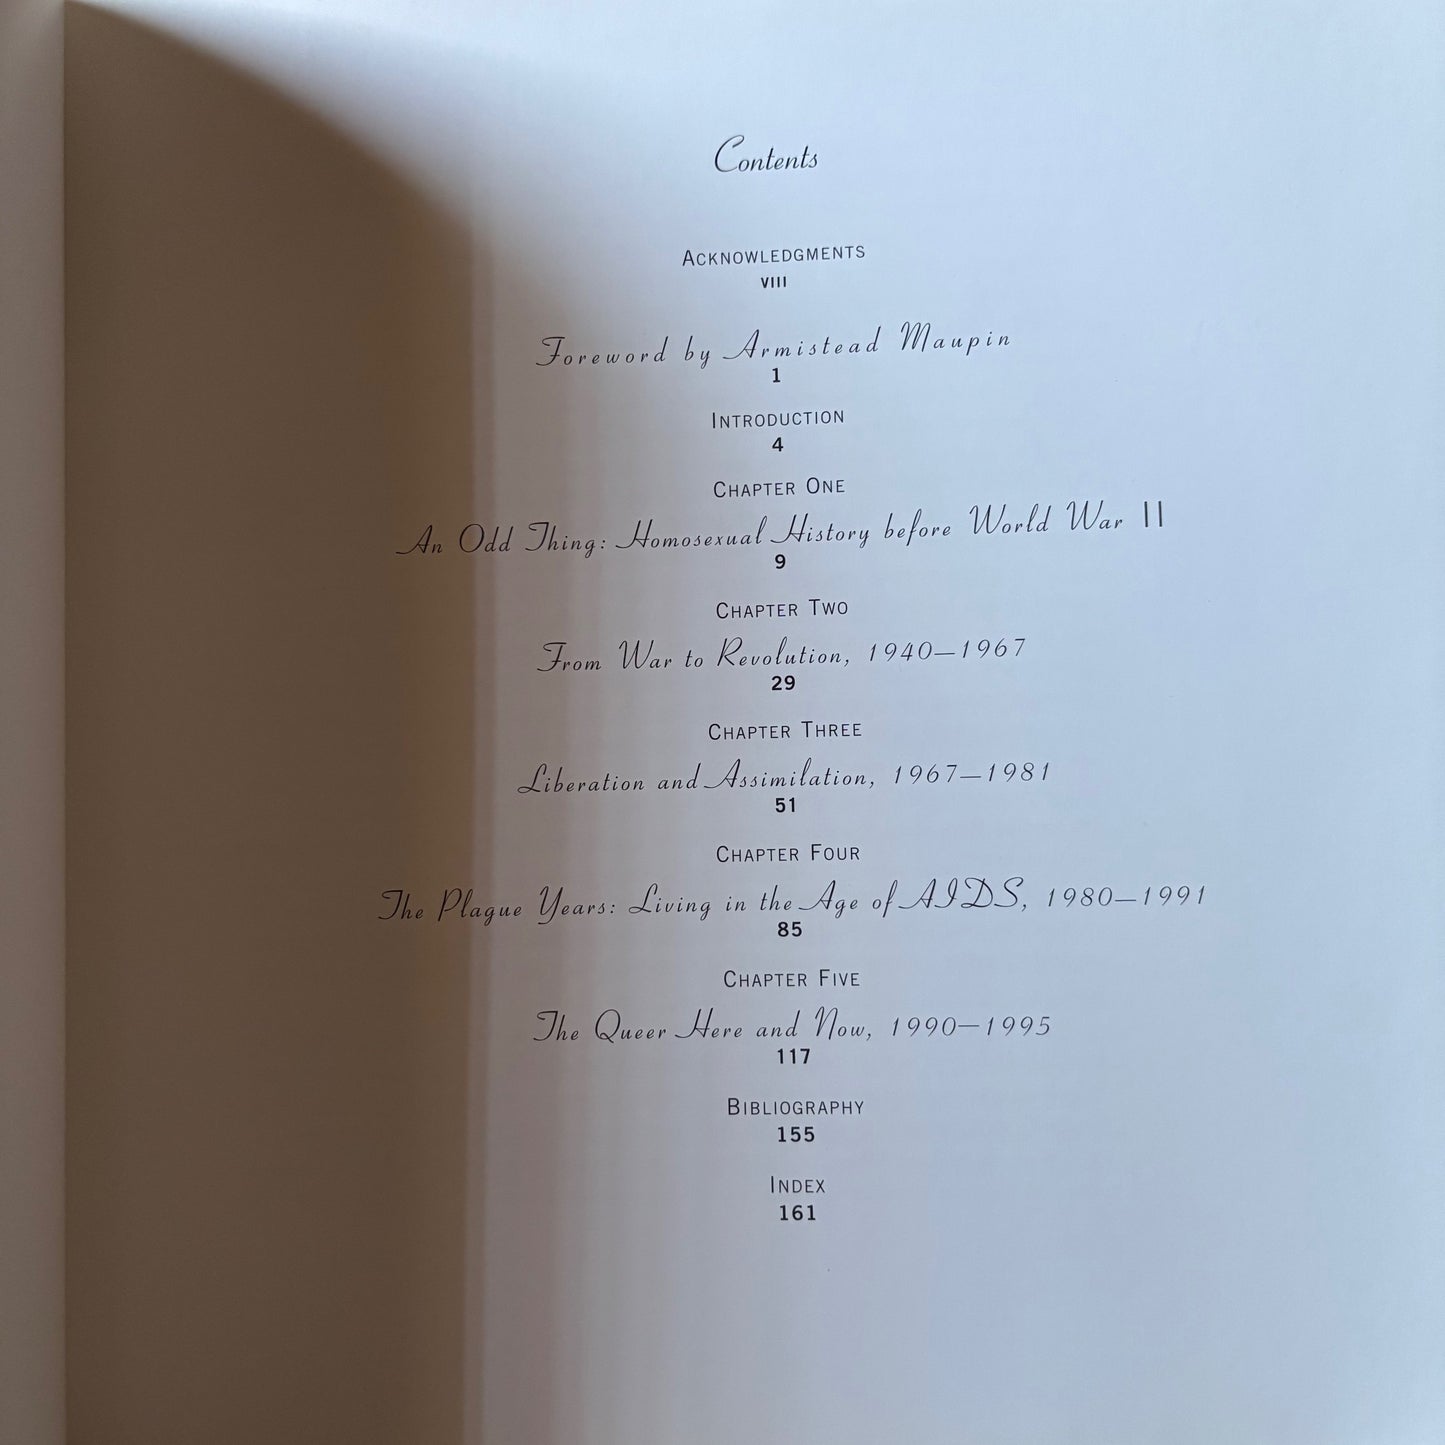 Contents
ACKNOWLEDGMENTS
VIII
Foreword by Armistead Maupin
1
INTRODUCTION
4
CHAPTER ONE
An Odd Thing: Homosexual History before World War II
9
CHAPTER TWO
From War to Revolution, 1940—1967
29
CHAPTER THREE
Liberation and Assimilation, 1967—1981
51
CHAPTER FOUR
The Plague Years: Living in the Age of AIDS, 1980—1991
85
CHAPTER FIVE
The Queer Here and Now, 1990—1995
117
BIBLIOGRAPHY
155
INDEX
161